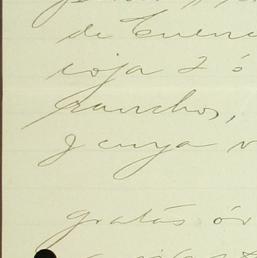 de Cuenc
coja 2 ó
ranchos,
y cuya v
gratás ór